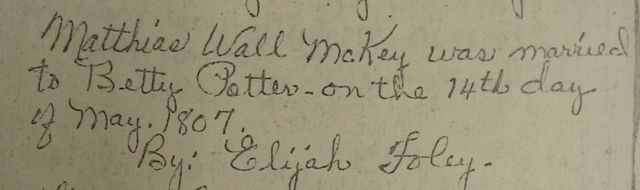 Matthias Wall McKey was married
to Betty Potter - on the 14th day
of May. 1807.
By: Elijah Foley.